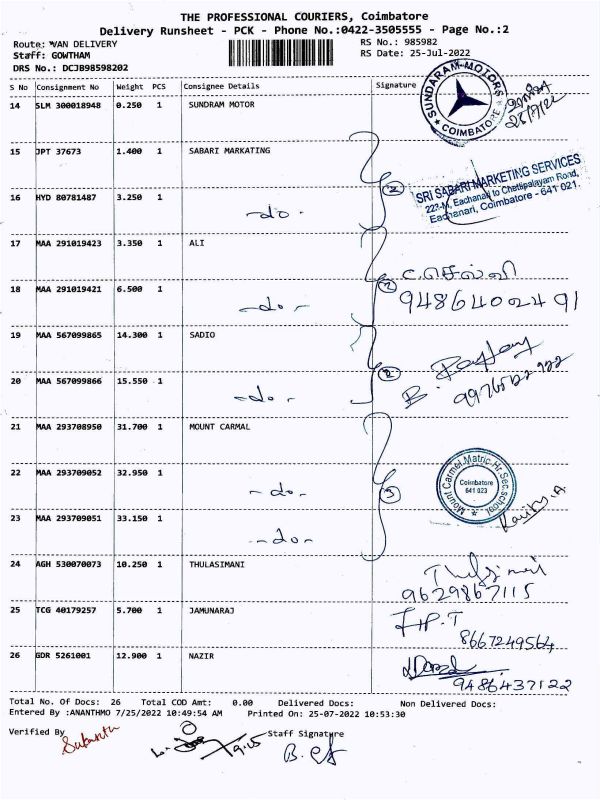 THE PROFESSIONAL COURIERS, Coimbatore
Delivery Runsheet - PCK - Phone No.:0422-3505555 - Page No.:2
Route: VAN DELIVERY RS No.: 985982
Staff: GOWTHAM RS Date: 25-Jul-2022
DRS No.: DCJB98598202
S No Consignment No Weight PCS Consignee Details Signature
14 SLM 300018948 0.250 1 SUNDRAM MOTOR
SUNDARAM MOTORS
COIMBATORE
15 JPT 37673 1.400 1 SABARI MARKATING
SRI SABARI MARKETING SERVICES
223-M, Eachanari to Chettipalayam Road,
Eachanari, Coimbatore - 641 021.
16 HYD 80781487 3.250 1 -do- 2
17 MAA 291019423 3.350 1 ALI
செல்வி
18 MAA 291019421 6.500 1 -do- 2 9486402491
19 MAA 567099865 14.300 1 SADIO
20 MAA 567099866 15.550 1 -do- 2 B.
21 MAA 293708950 31.700 1 MOUNT CARMAL
Mount Carmel Matric Hr.Sec.School
Coimbatore
641 023
22 MAA 293709052 32.950 1 -do- 3
23 MAA 293709051 33.150 1 -do-
24 AGH 530070073 10.250 1 THULASIMANI
9629867115
25 TCG 40179257 5.700 1 JAMUNARAJ
8667249564
26 GDR 5261001 12.900 1 NAZIR
9486437122
Total No. Of Docs: 26 Total COD Amt: 0.00 Delivered Docs: Non Delivered Docs:
Entered By :ANANTHMO 7/25/2022 10:49:54 AM Printed On: 25-07-2022 10:53:30
Verified By Staff Signature